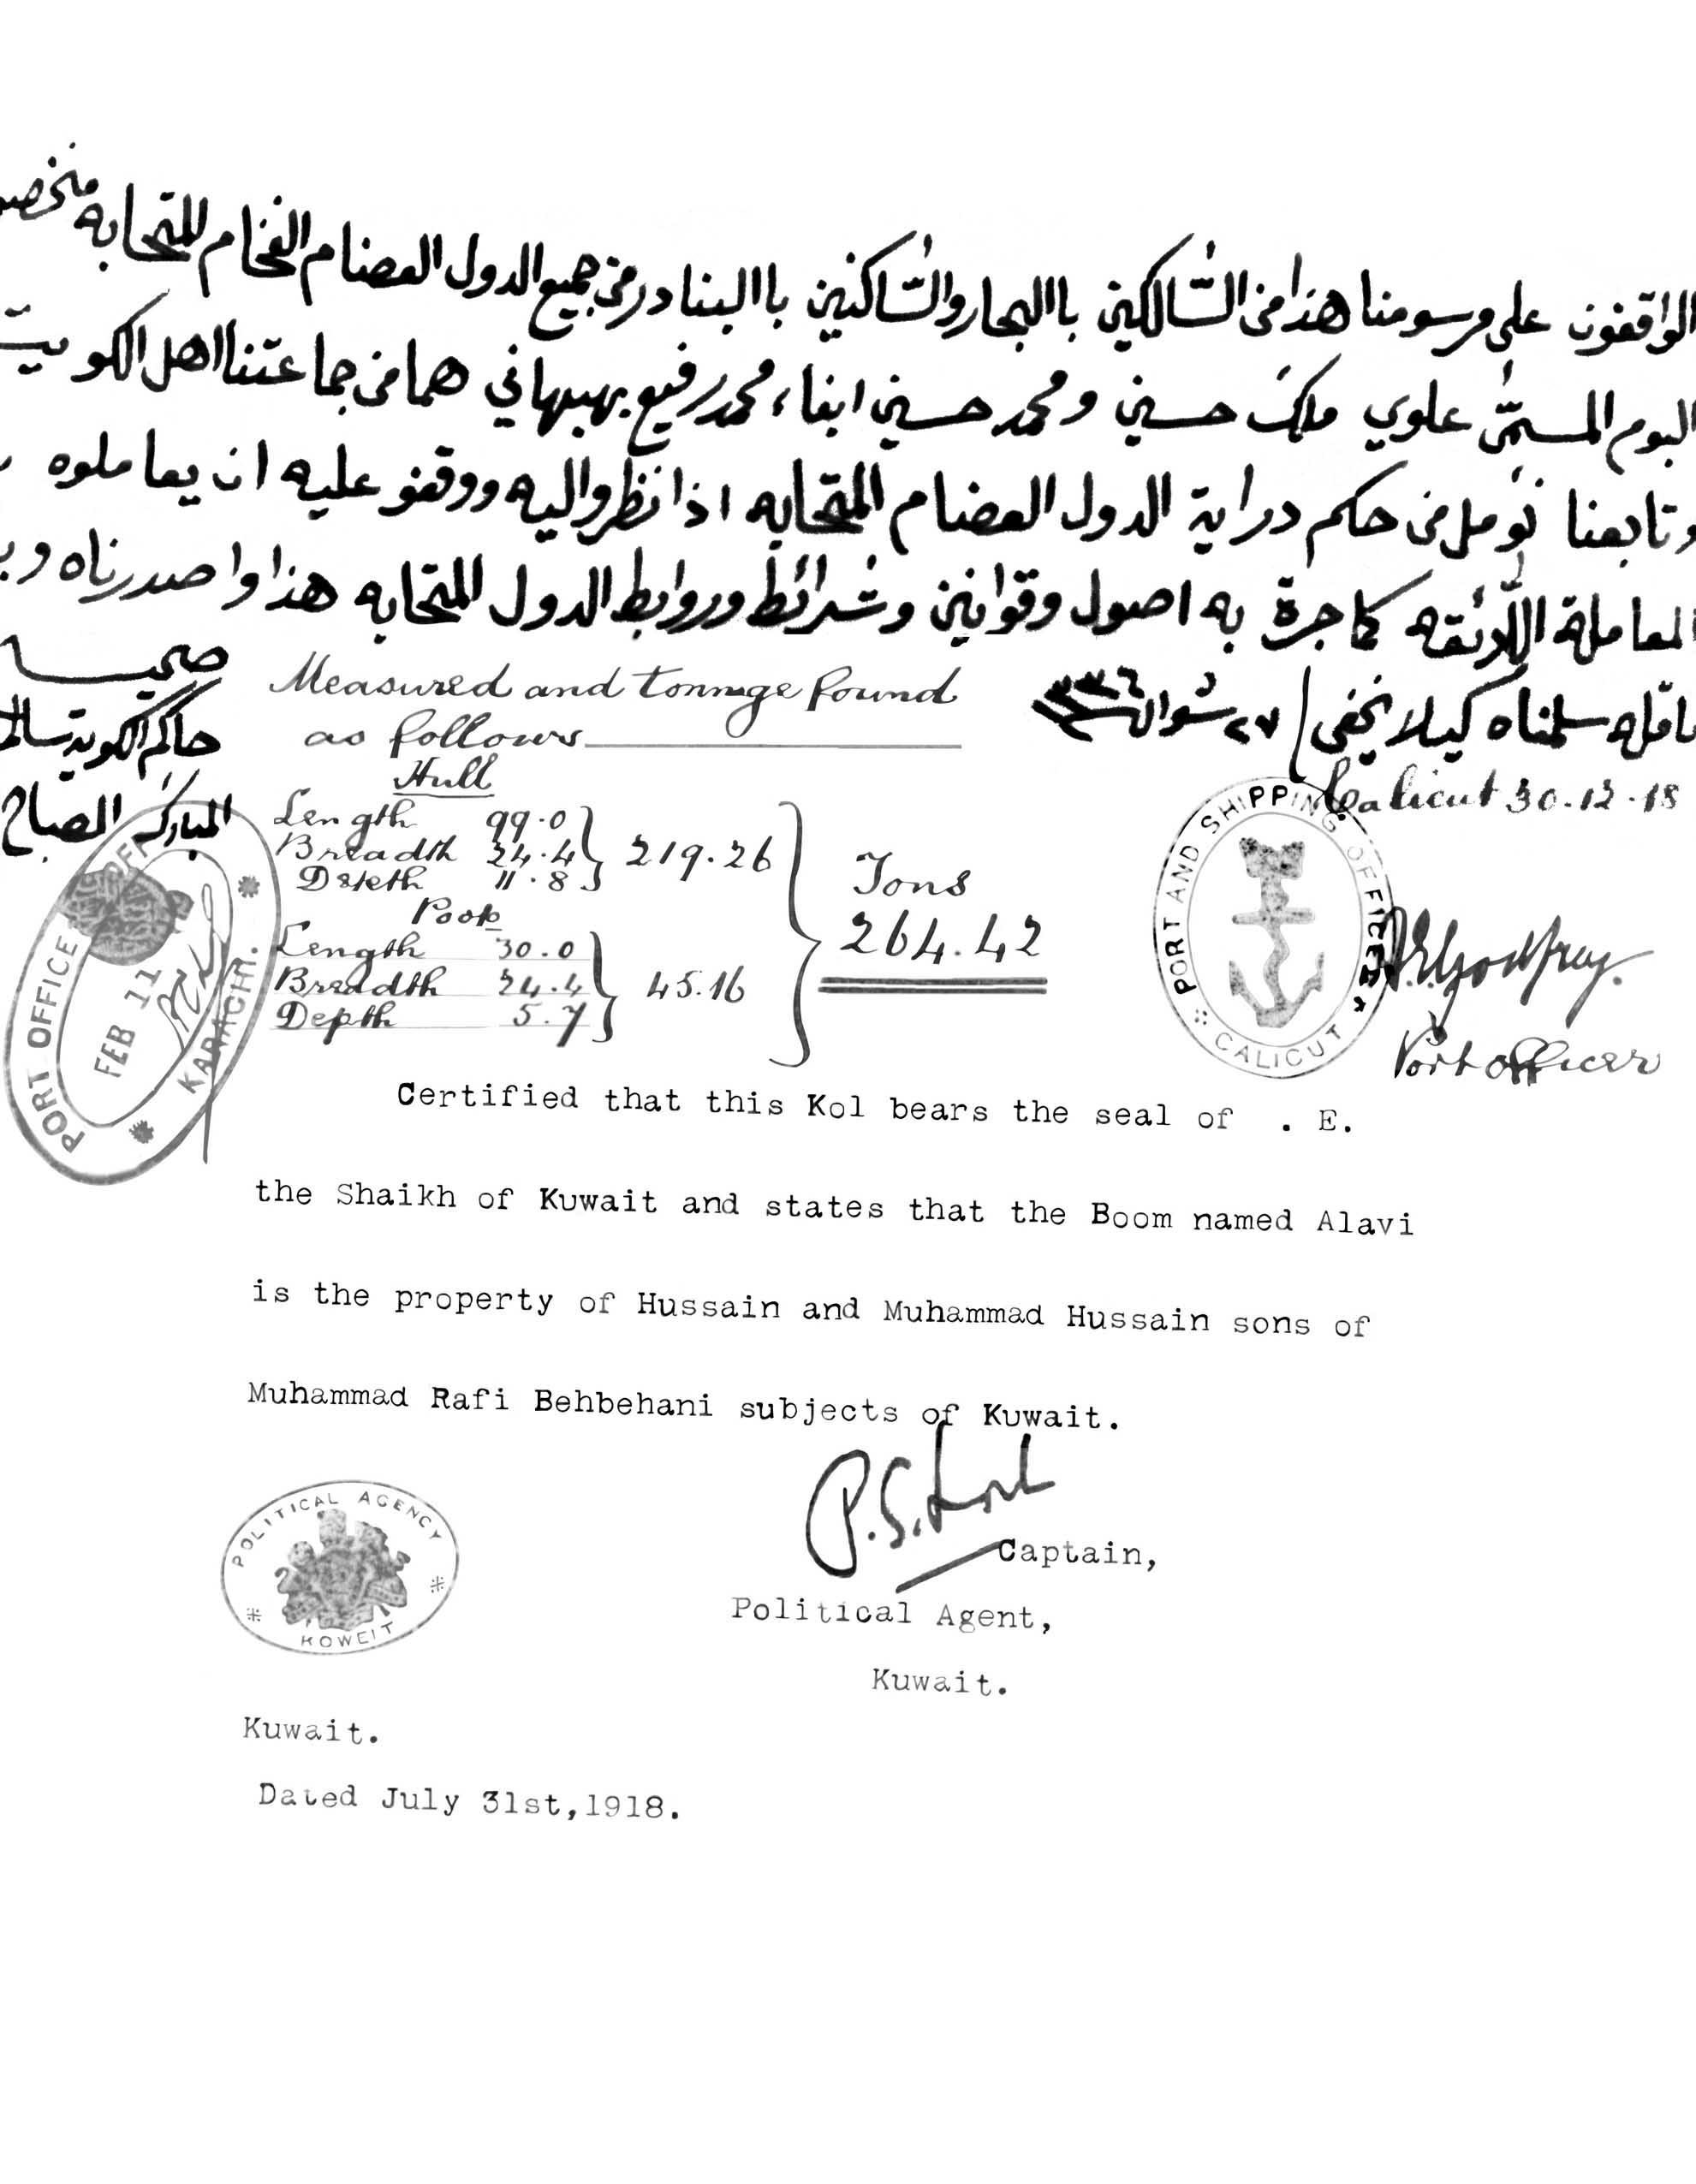 الواقفون على مرسومنا هذا من السّالكين باالبحار والسّاكنين باالبنادر من جميع الدول العضام الفخام المتحابه
البوم المسمّى علوي ملك حسين ومحمد حسين ابناء محمد رفيع بهبهاني هما من جماعتنا اهل الكويت
وتابعنا نؤمل من حكم دراية الدول العضام المتحابه اذا نظروا اليه ووقفو عليه ان يعاملوه
المعاملة اللائقه كما جرة به اصول وقوانين وشرائط وروابط الدول المتحابه هذا واصدرناه
سلمناه كيلا يخفى ٢٧ شوال
صحيح
حاكم الكويت سالم
المبارك الصباح
Measured and tonnage found
as follows
Hull
Length 99.0
Breadth 24.4
Depth 11.8
219.26
Poop
Length 30.0
Breadth 24.4
Depth 5.7
45.16
Tons
264.42
Calicut 30.12.18
PORT AND SHIPPING OFFICE
CALICUT
Port officer
PORT OFFICE
FEB 11
KARACHI.
Certified that this Kol bears the seal of . E.
the Shaikh of Kuwait and states that the Boom named Alavi
is the property of Hussain and Muhammad Hussain sons of
Muhammad Rafi Behbehani subjects of Kuwait.
Captain,
Political Agent,
Kuwait.
POLITICAL AGENCY
KOWEIT
Kuwait.
Dated July 31st,1918.